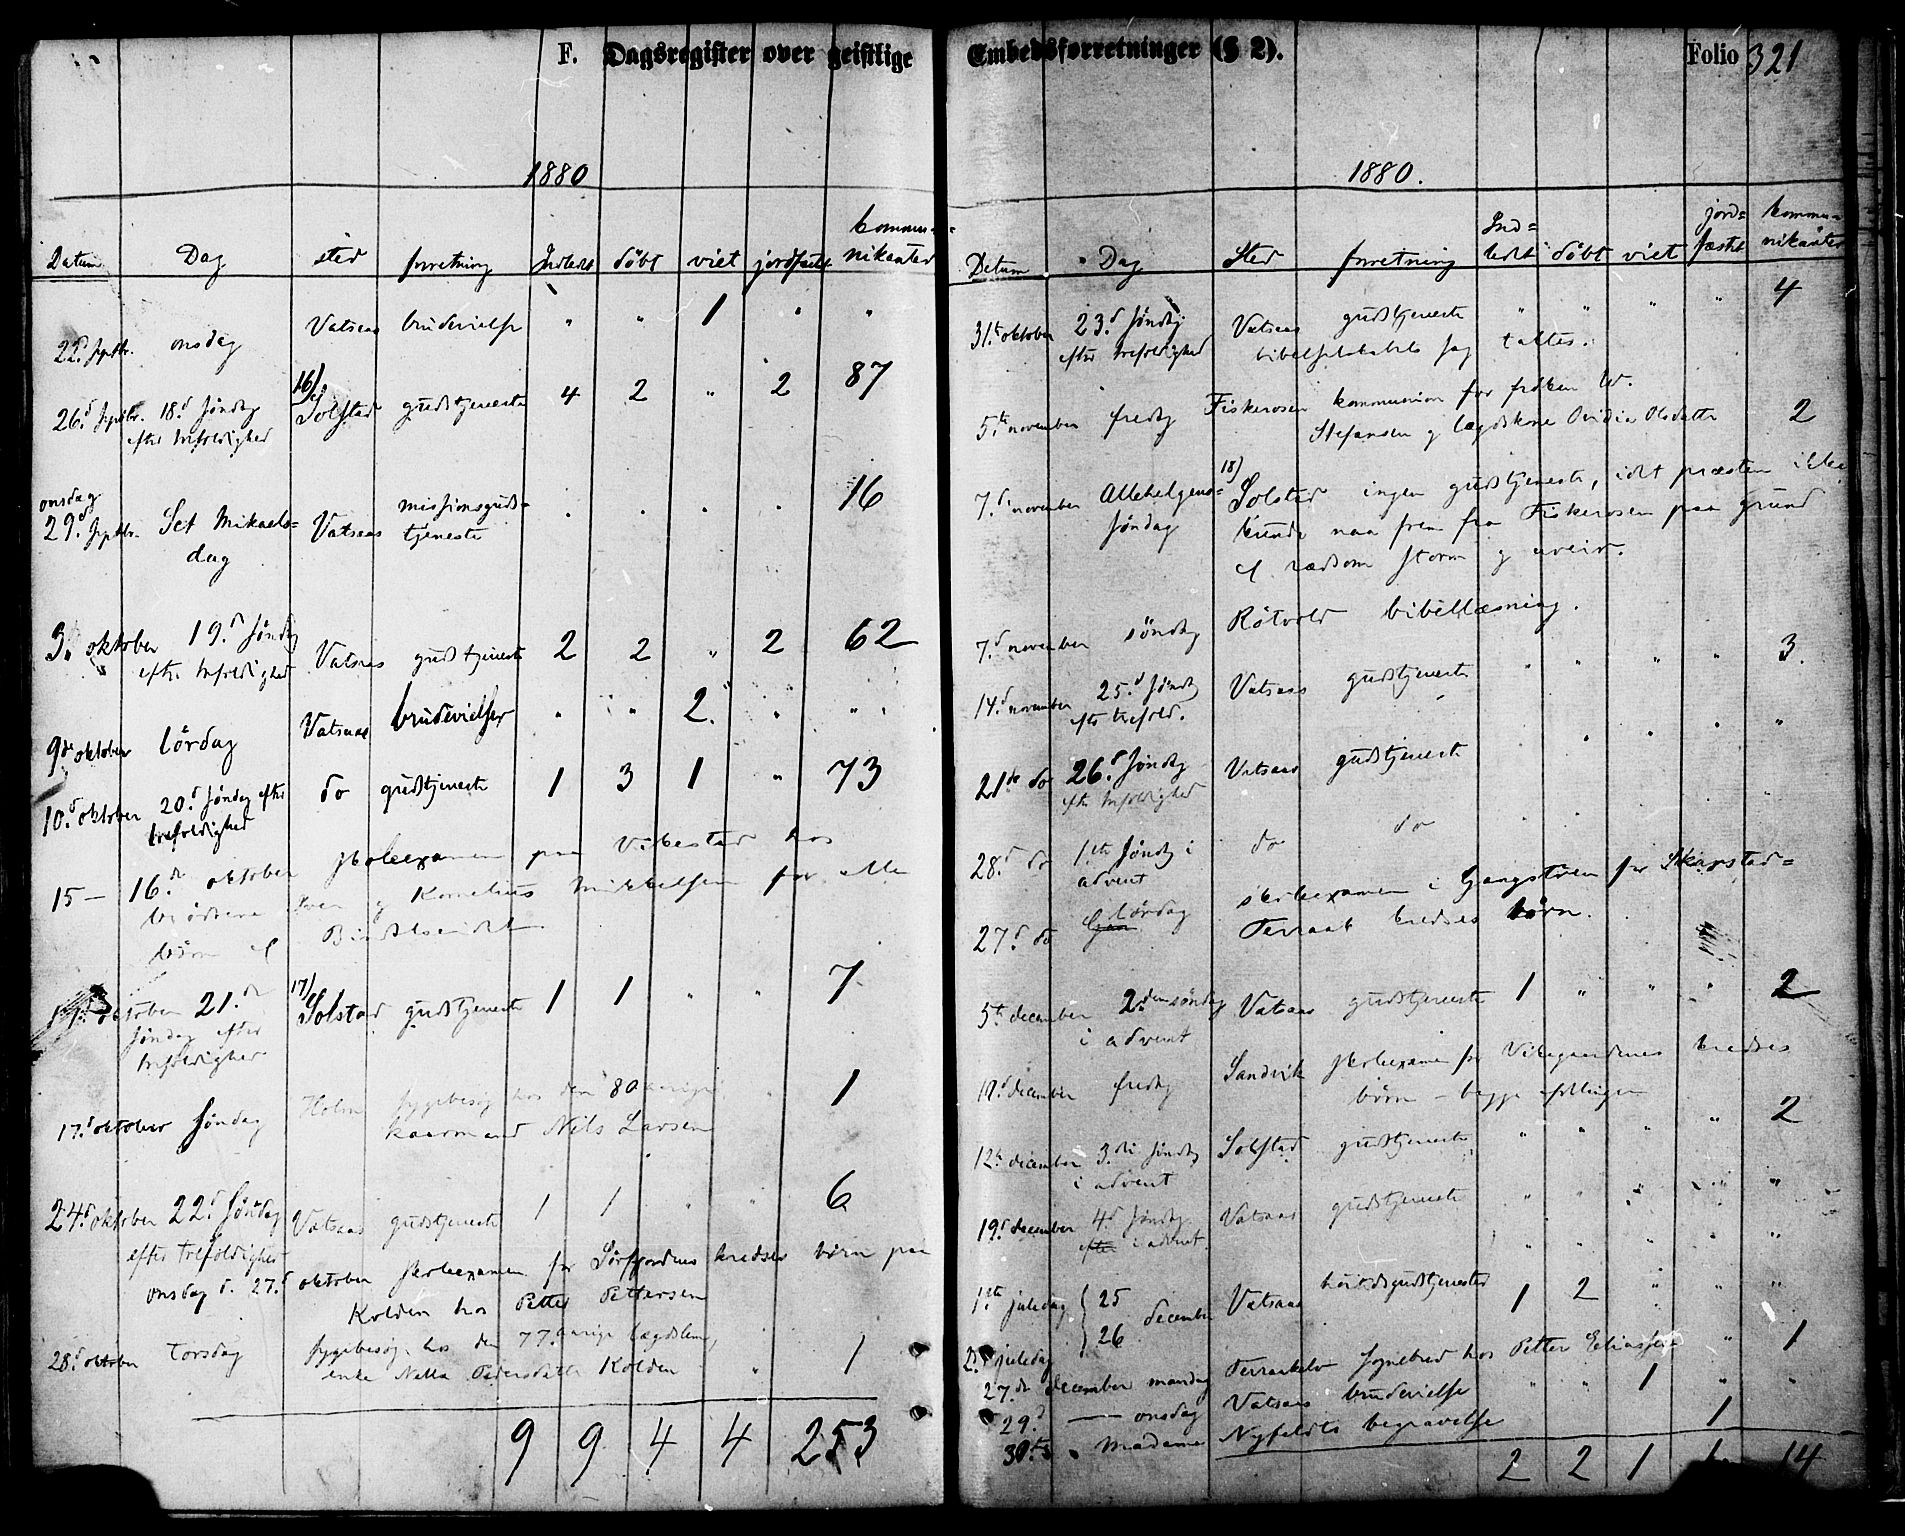 F. Dagsregister over geistlige
1880
Datum Dag sted forretning Indledt døbt viet jordfæstet kommu- nikanter
22d septbr. onsdag Vatsaas brudevielse " " 1 " "
26d septbr. 18d søndag efter trefoldighed 16) Solstad gudstjeneste 4 2 " 2 87
onsdag 29d septbr. Sct Mikaels= dag Vatsaas missionsguds= tjeneste . . . . 16
3. oktober 19d søndag efter trefoldighed Vatsaas gudstjeneste 2 2 " 2 62
9de oktober lördag Vatsaas brudevielser " " 2. " "
10d oktober 20d søndag efter trefoldighed do gudstjeneste 1 3 1 " 73
15 – 16de oktober skoleexamen paa Vikestad hos
brødrene Iver og Kornelius Mikkelsen for alle
børn af
17d oktober 21de søndag efter trefoldighed 17) Solstad gudstjeneste 1 1 " " 7
17d oktober søndag Holm sygebesøg hos den 80 aarige " 1
kaarmand Nils Larsen
24d oktober 22d søndag efter trefoldighed Vatsaas gudstjeneste 1 1 " " 6
onsdag d. 27d oktober skoleexamen for Sörfjordens kredses börn paa
Kolden hos Petter Pettersen
28d oktober torsdag sygebesøg hos den 77 aarige lægdslem,
enke Nella Pedersdatter Kolden " 1
9 9 4 4 253
Embedsforretninger (§ 2). Folio 321
1880.
Datum Dag Sted forretning Ind= ledt døbt viet jord= fæstet kommu= nikanter
31te oktober 23d søndag efter trefoldighed Vatsaas gudstjeneste " " " " 4
bibelselskabets sag taltes.
5te november fredag Fiskerosen kommunion for frøken W.
Stefansen og lægdskone Ovidia Olsdatter 2
7d november Allehelgens= søndag 18) Solstad ingen gudstjeneste, idet præsten ikke
kunde naa frem fra Fiskerosen paa grund
af rædsom storm og uveir.
7d november söndag Rötvold bibellæsning.
14d november 25d søndag efter trefold. Vatsaas gudstjeneste " " " " 3.
21de do 26d søndag efter trefoldighed Vatsaas gudstjeneste " " " "
28d do 1ste søndag i advent do do " "
27d do lördag skoleexamen i Gangstöen for Skarstad=
Terraak kredses börn.
5te december 2den söndag i advent Vatsaas gudstjeneste 1 " " " 2
10d december fredag Sandvik skoleexamen for Vikegaardenes kredses
börn – begge afdelinger
12te december 3die søndag i advent Solstad gudstjeneste " " " " 2
19d december 4d søndag efter i advent. Vatsaas gudstjeneste " " " " "
1ste juledag 25 december Vatsaas höitidsgudstjenester 1 2 " " "
2d juledag 26
27de december mandag Terraakelv sognebud hos Petter Eliassen " 1
29d — onsdag Vatsaas brudevielse " " 1 " "
30te " Madame Nyfeldts begravelse 1
2 2 1 1 14